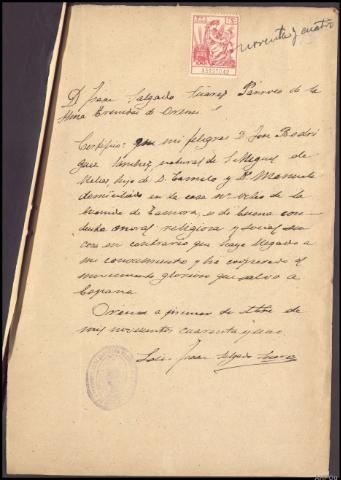 noventa y cuatro
D. Juan Salgado Suarez Párroco de la
Stma Trinidad de Orense
Certifico: que mi feligres D. José Rodri
guez natural de S. Miguel de
hijo de D. Camilo y Dª Manuela
domiciliado en la casa nº ocho de la
Avenida de Zamora, es de buena con
ducta moral religiosa y social sin
cosa en contrario que haya llegado a
mi conocimiento y ha cooperado al
movimiento glorioso que salvo a
España
Orense a primero de de
mil novecientos cuarenta y uno
Juan Salgado Suarez